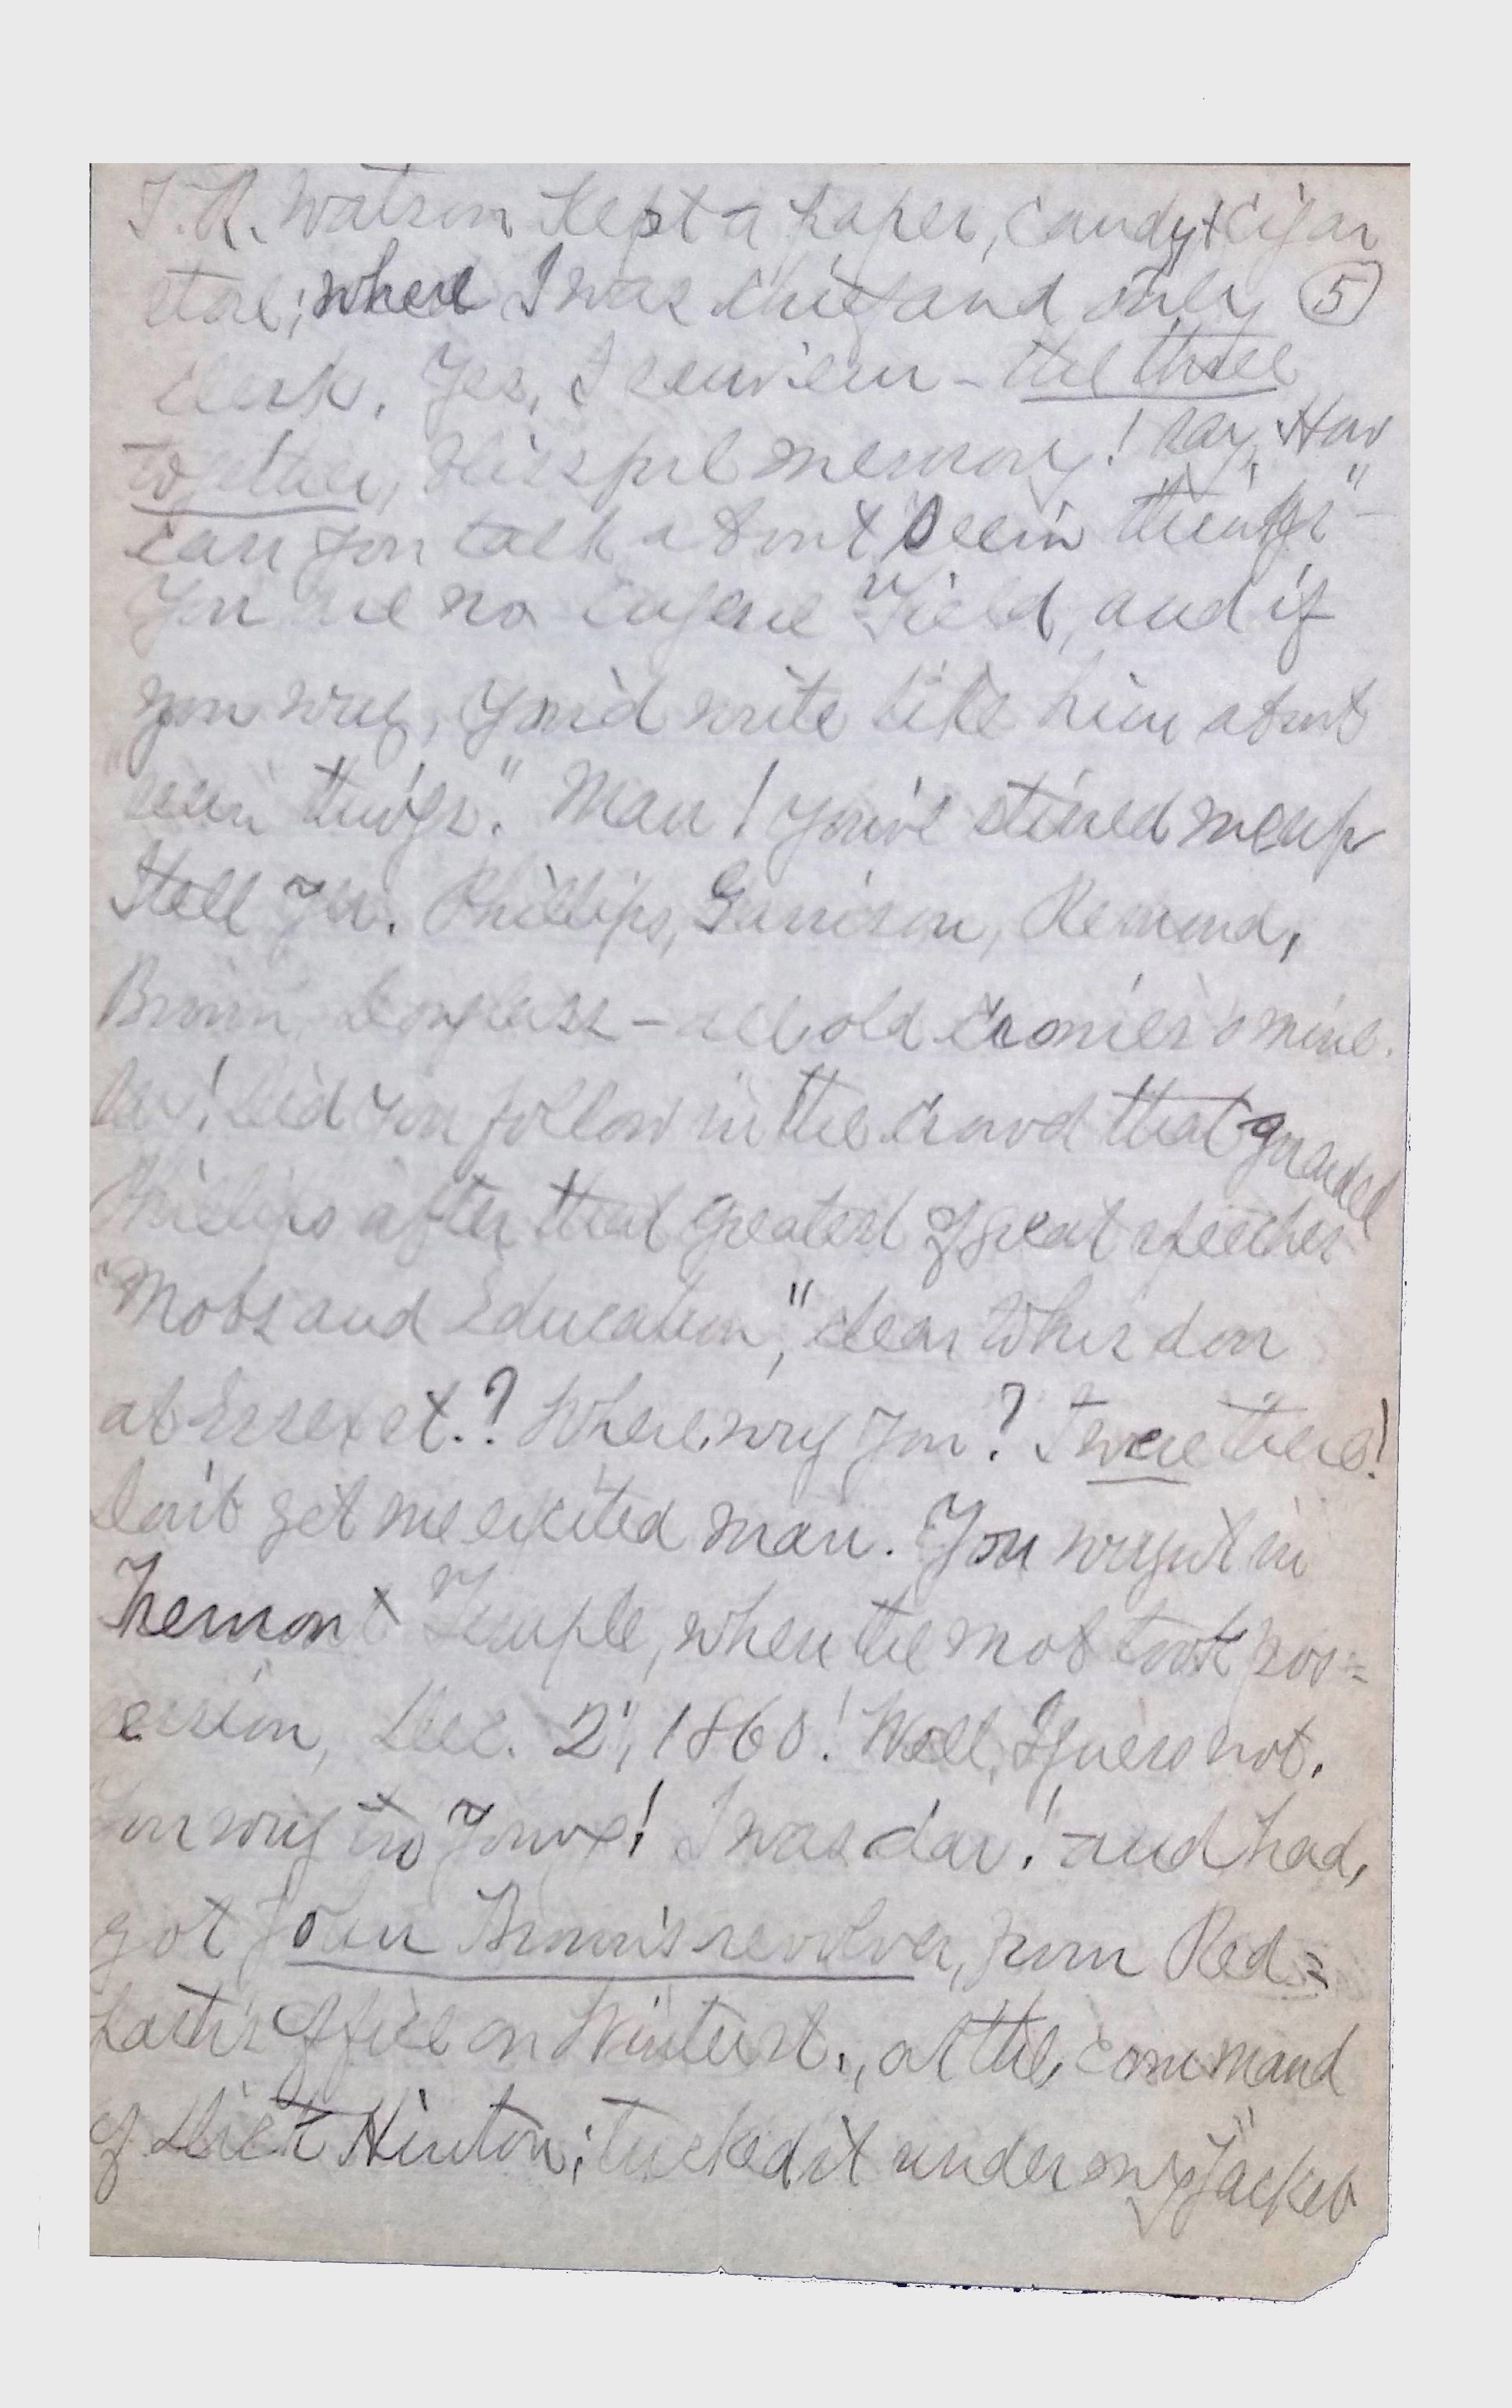 J. R. Watson kept a paper, candy & cigar
store; where I was chief and only (5)
clerk. Yes, I souviens – the three
together, blissful memory! Say, How
can you talk about "Seein' things" –
You are no Eugene Field, and if
you wuz, you'd write like him about
"seein' things." Man! you've stirred me up
I tell yer. Phillips, Garrison, Remond,
Brown Douglass – all old cronies o' mine.
Say! Did you follow in the crowd that guarded
Phillips after that greatest of great speeches
"Mobs and Education," clear to his door
at Essex st.? Where wuz you? I were there!
Don't get me excited man. You wuzn't in
Tremont Temple, when the mob took pos=
session, Dec. 2', 1860! Well, I guess not.
You wuz too young! I was dar! and had,
got John Brown's revolver, from Red=
path's office on Winter st., at the command
of Dick Hinton; tucked it under my "Jacket